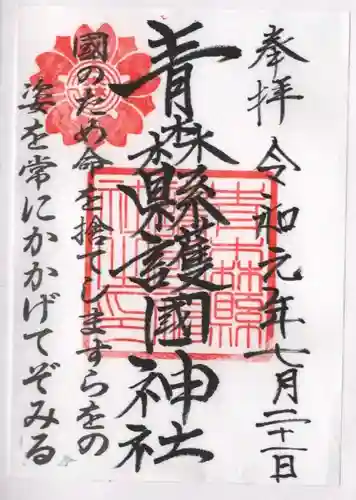 奉拝
令和元年七月二十一日
青森縣護國神社
國のため命を捨てしますらをの
姿を常にかかげてぞみる